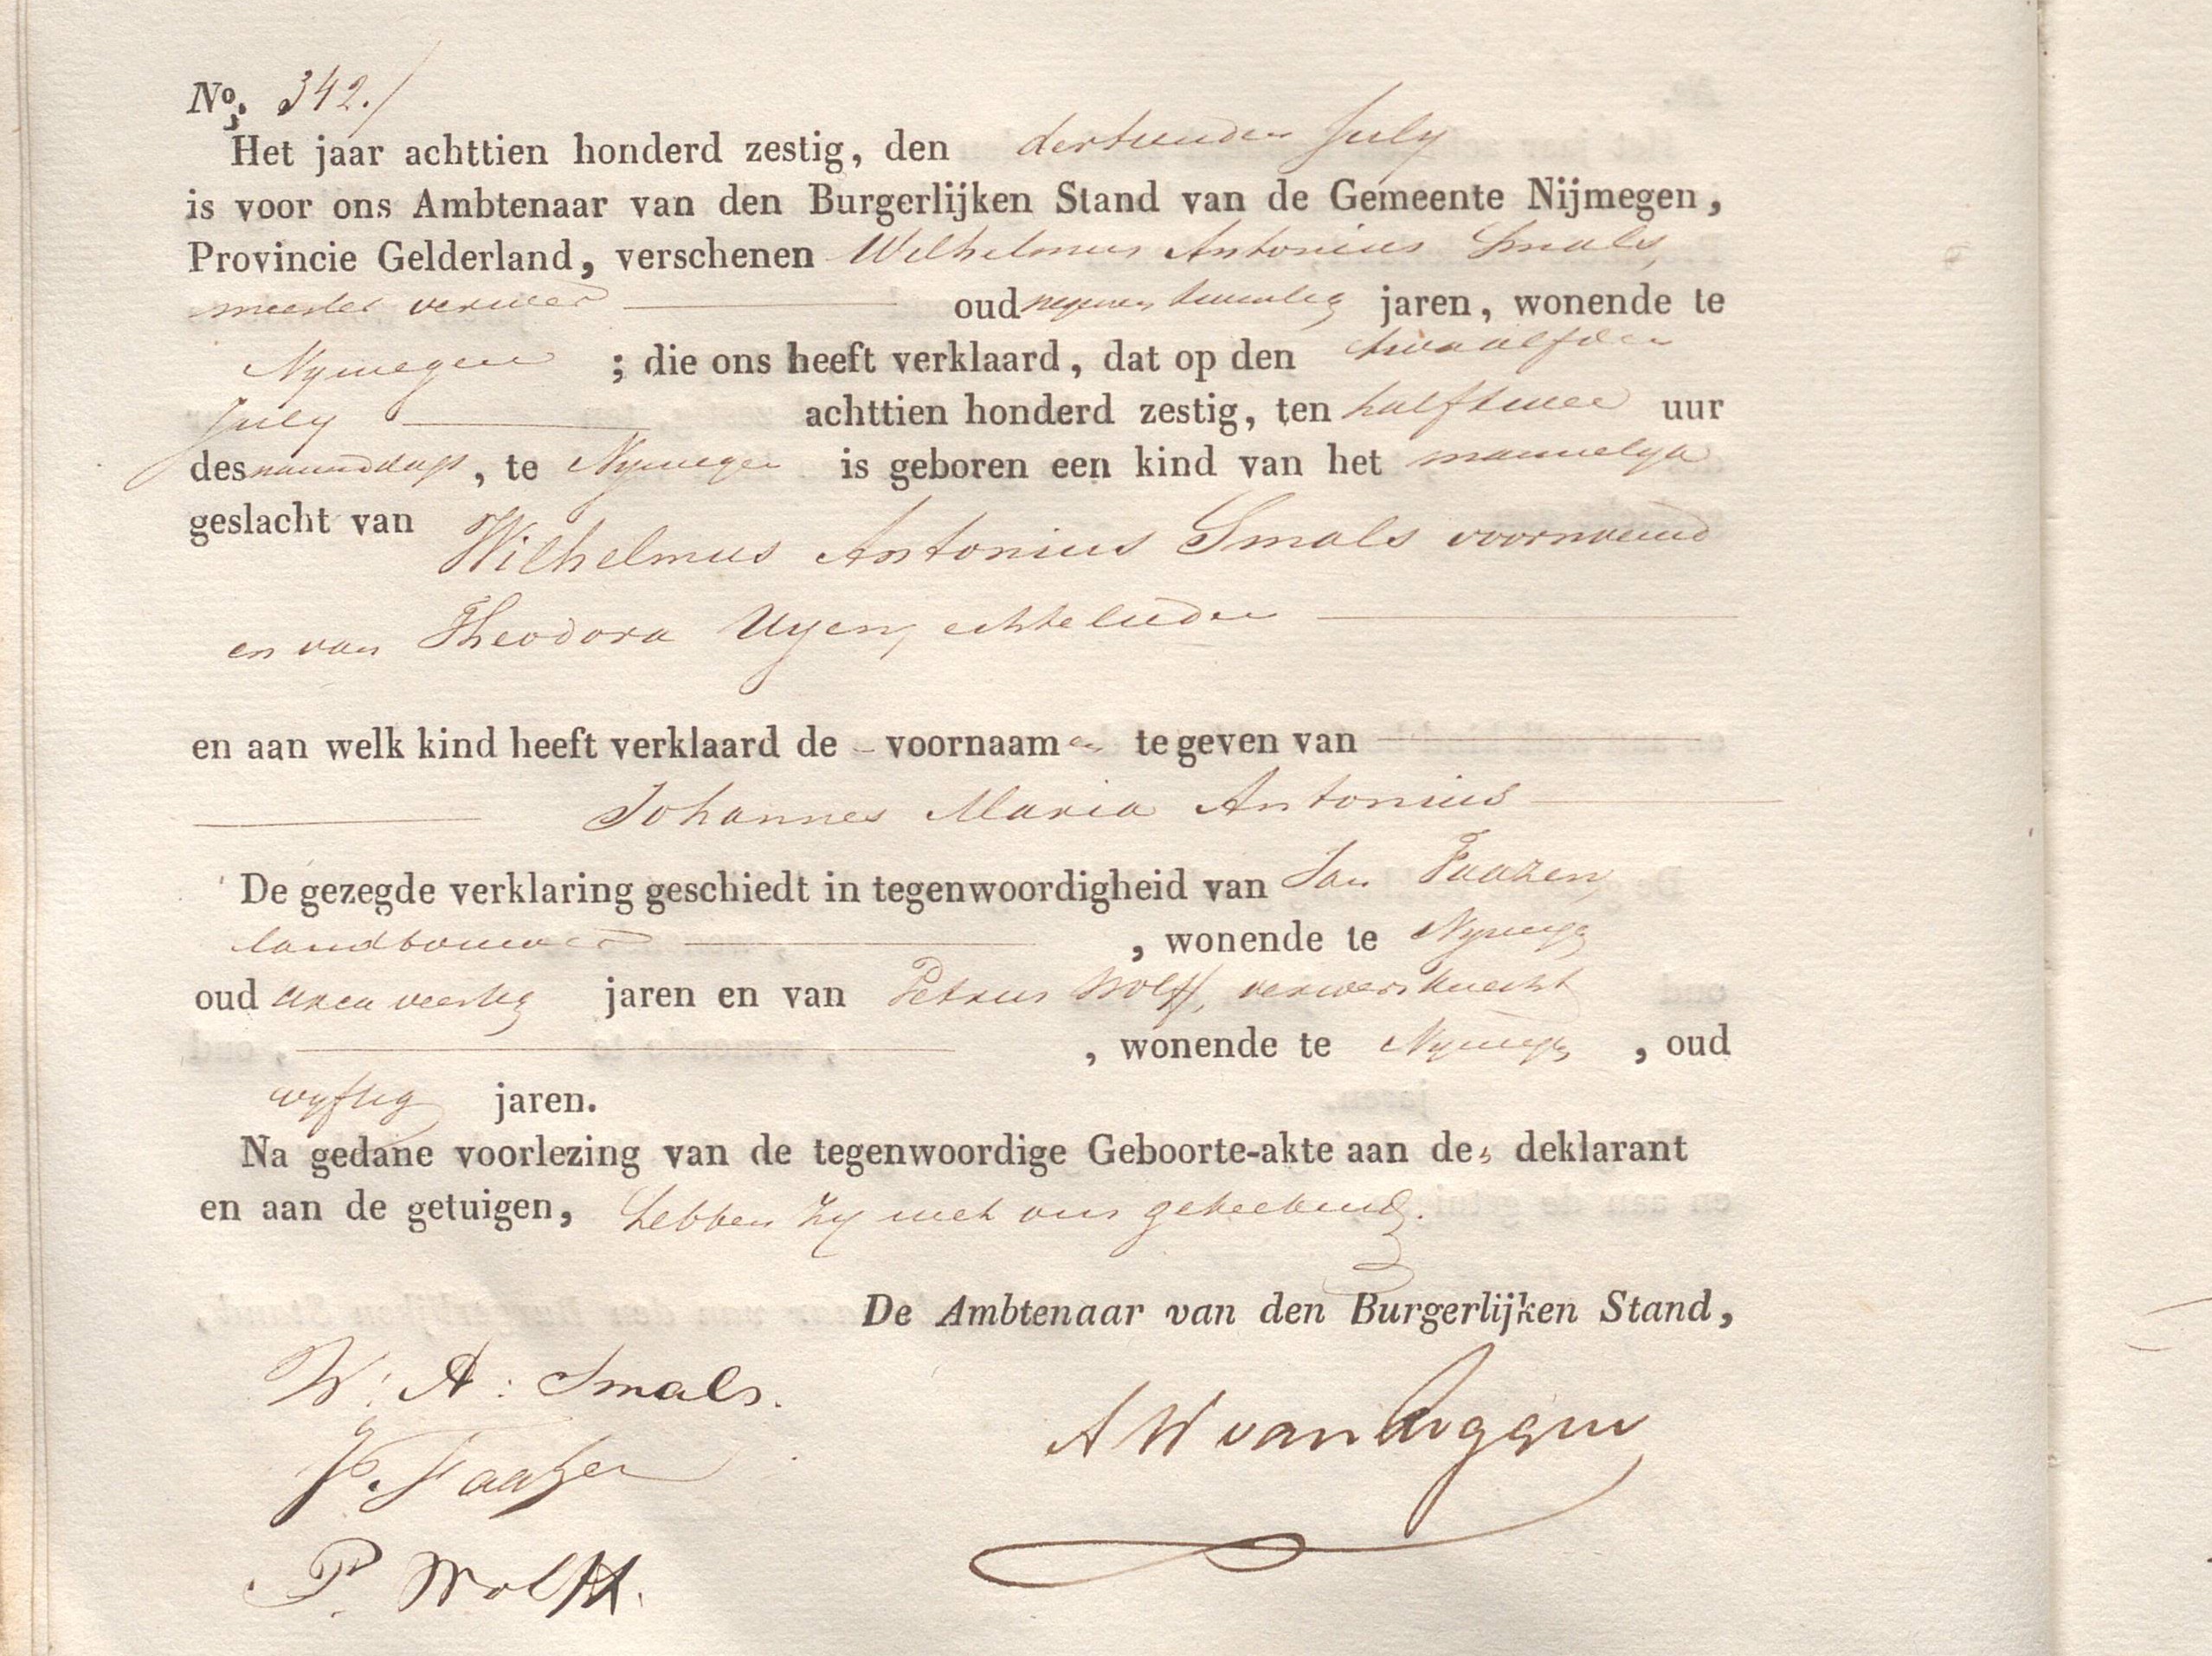 No. 342./
Het jaar achttien honderd zestig, den dertienden July
is voor ons Ambtenaar van den Burgerlijken Stand van de Gemeente Nijmegen,
Provincie Gelderland, verschenen Wilhelmus Antonius Smals,
meester verwer oud negenentwintig jaren, wonende te
Nymegen ; die ons heeft verklaard, dat op den twaalfden
July achttien honderd zestig, ten half twee uur
des namiddags, te Nymegen is geboren een kind van het mannelyk
geslacht van
Wilhelmus Antonius Smals voornoemd
en van Theodora Uyen, echtelieden
en aan welk kind heeft verklaard de voornaamen te geven van
Johannes Maria Antonius
De gezegde verklaring geschiedt in tegenwoordigheid van Jan Faazen,
landbouwer , wonende te Nymegen
oud veertig jaren en van Petrus Wolff, verwersknecht
, wonende te Nymegen , oud
vyftig jaren.
Na gedane voorlezing van de tegenwoordige Geboorte-akte aan den deklarant
en aan de getuigen, hebben zy met ons geteekend.
De Ambtenaar van den Burgerlijken Stand,
W: A: Smals.
J. Faazen
P. Wolff.